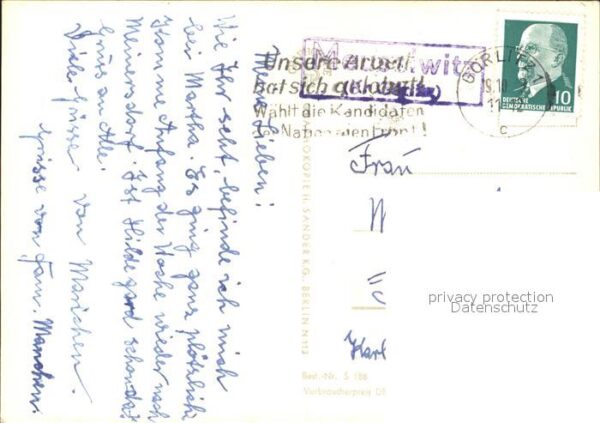 Ihr Lieben!
Wie Ihr seht, befinde ich mich
bei Martha. Es ging ganz plötzlich
Komme Anfang der Woche wieder nach
Meinersdorf. Ist Hildegard schon da?
Gruss an Alle.
Viele Grüsse von Mariechen.
Grüsse von Fam. Manchen.
Unsere Arbeit
hat sich gelohnt!
Wählt die Kandidaten
der Nationalen Front!
GÖRLITZ 1
19.10
c
DEUTSCHE
DEMOKRATISCHE REPUBLIK
10
Frau
Karl
H. SANDER K.G., BERLIN N 113
Best.-Nr. S 186
Verbraucherpreis DM
privacy protection
Datenschutz